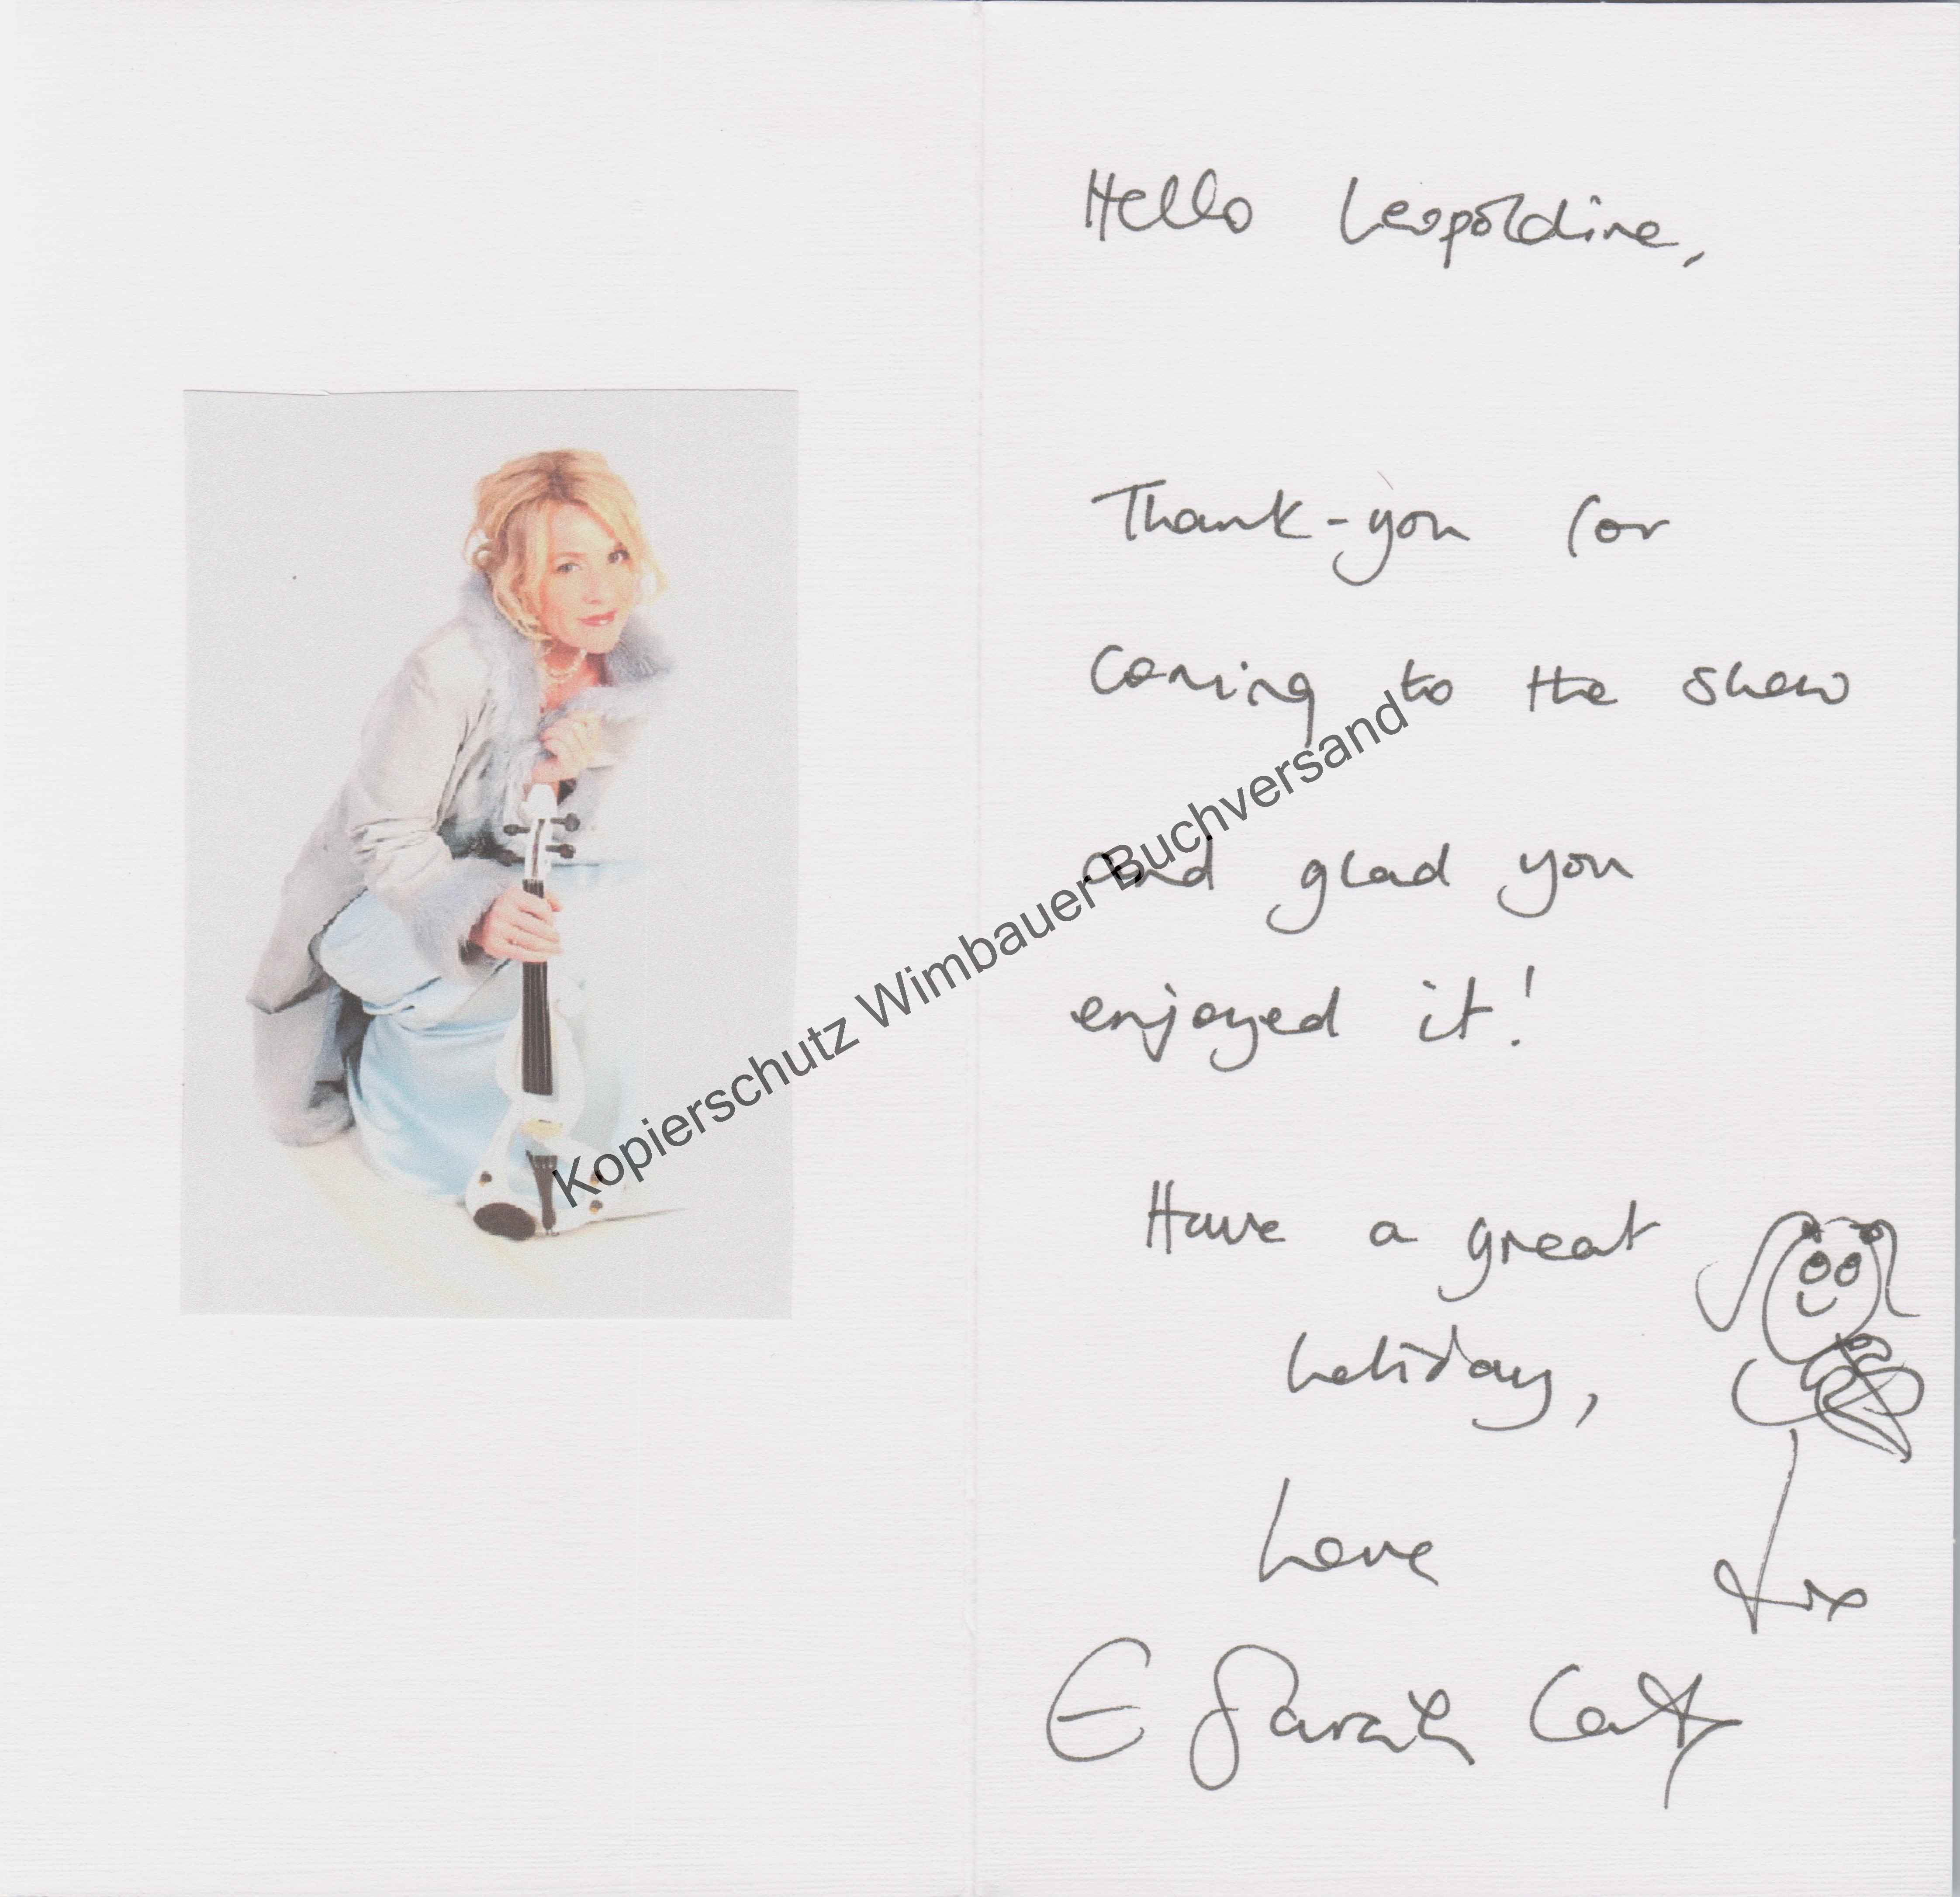 Hello Leopoldine,
Thank-you for
coming to the show
and glad you
enjoyed it!
Have a great
holiday,
Love
E Sarah
Kopierschutz Wimbauer Buchversand